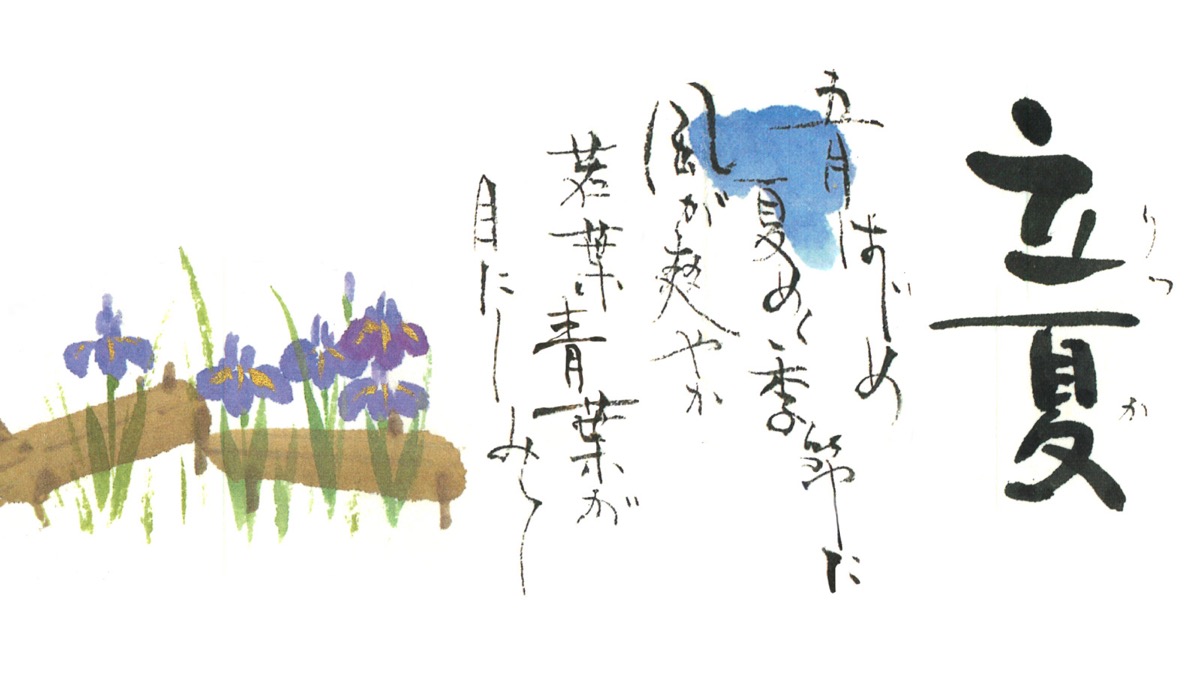 立夏
りつ か
五月はじめ
夏めく季節に
風が爽やか
若葉青葉が
目に